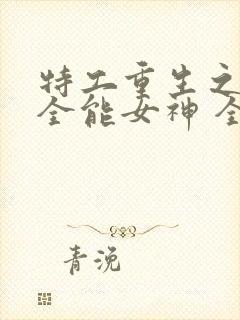 特工重生之
全能女神 全
青浼